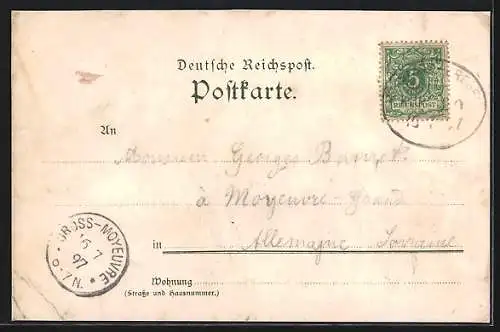 Deutsche Reichspost.
Postkarte.
5
REICHSPOST
An
Monsieur Georges
à Moyeuvre-Grand
in Allemagne Lorraine
GROSS-MOYEUVRE
15
7
97
Wohnung
(Straße und Hausnummer.)